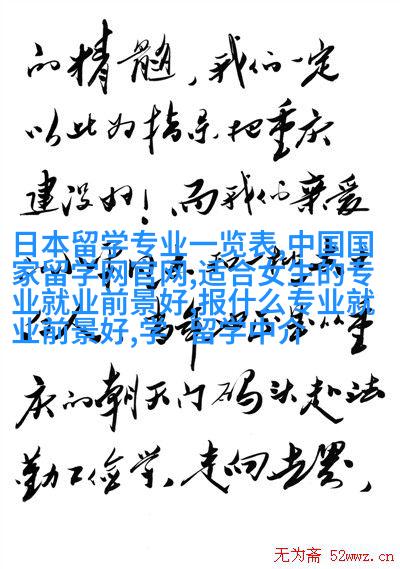 的精髓，我们一定
以此为指导把重庆
建设好！而我们亲爱
日本留学专业一览表,中国国
家留学网官网,适合女生的专
业就业前景好,报什么专业就
业前景好,学 留学中介
庆的朝天门码头赴法
勤工俭学，走向世界，
无为斋 52wwz.cn